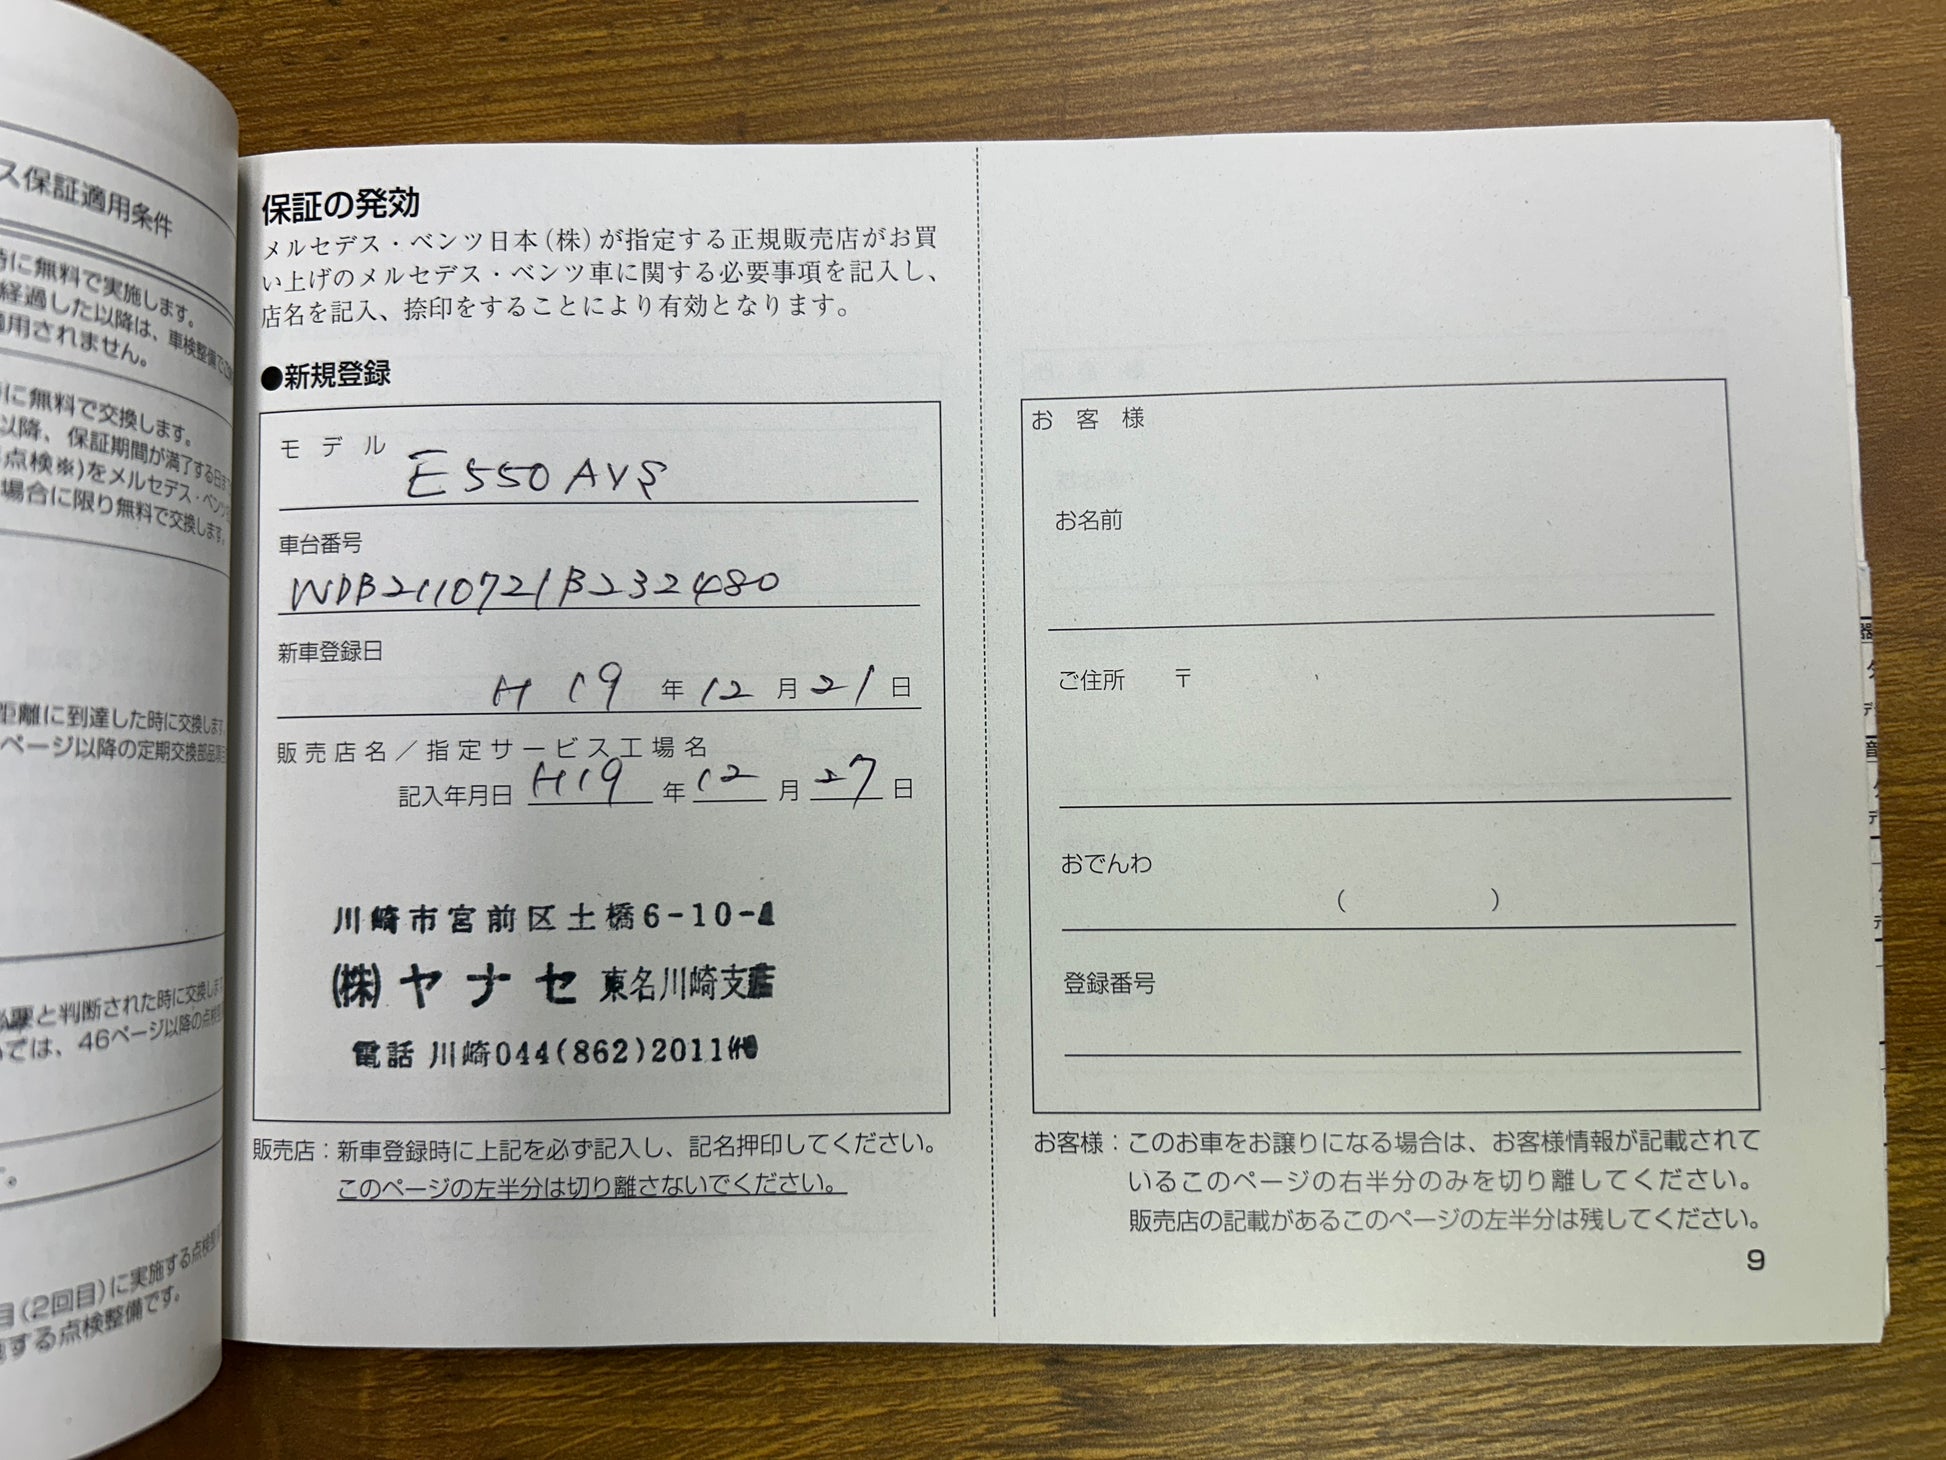 ス保証適用条件
時に無料で実施します。
経過した以降は、車検整備で
適用されません。
に無料で交換します。
以降、保証期間が満了する日ま
点検※)をメルセデス・ベンツ
場合に限り無料で交換します。
距離に到達した時に交換します
ページ以降の定期交換部品項目
必要と判断された時に交換します
いては、46ページ以降の点検
す。
目(2回目)に実施する点検整
する点検整備です。
保証の発効
メルセデス・ベンツ日本(株)が指定する正規販売店がお買
い上げのメルセデス・ベンツ車に関する必要事項を記入し、
店名を記入、捺印をすることにより有効となります。
●新規登録
モデル E550 AVS
車台番号
WDB2110721B232480
新車登録日
H19年12月21日
販売店名/指定サービス工場名
記入年月日 H19年12月27日
川崎市宮前区土橋6-10-1
(株)ヤナセ 東名川崎支店
電話 川崎044(862)2011㈹
販売店:新車登録時に上記を必ず記入し、記名押印してください。
このページの左半分は切り離さないでください。
お客様
お名前
ご住所 〒
おでんわ
( )
登録番号
お客様:このお車をお譲りになる場合は、お客様情報が記載されて
いるこのページの右半分のみを切り離してください。
販売店の記載があるこのページの左半分は残してください。
9